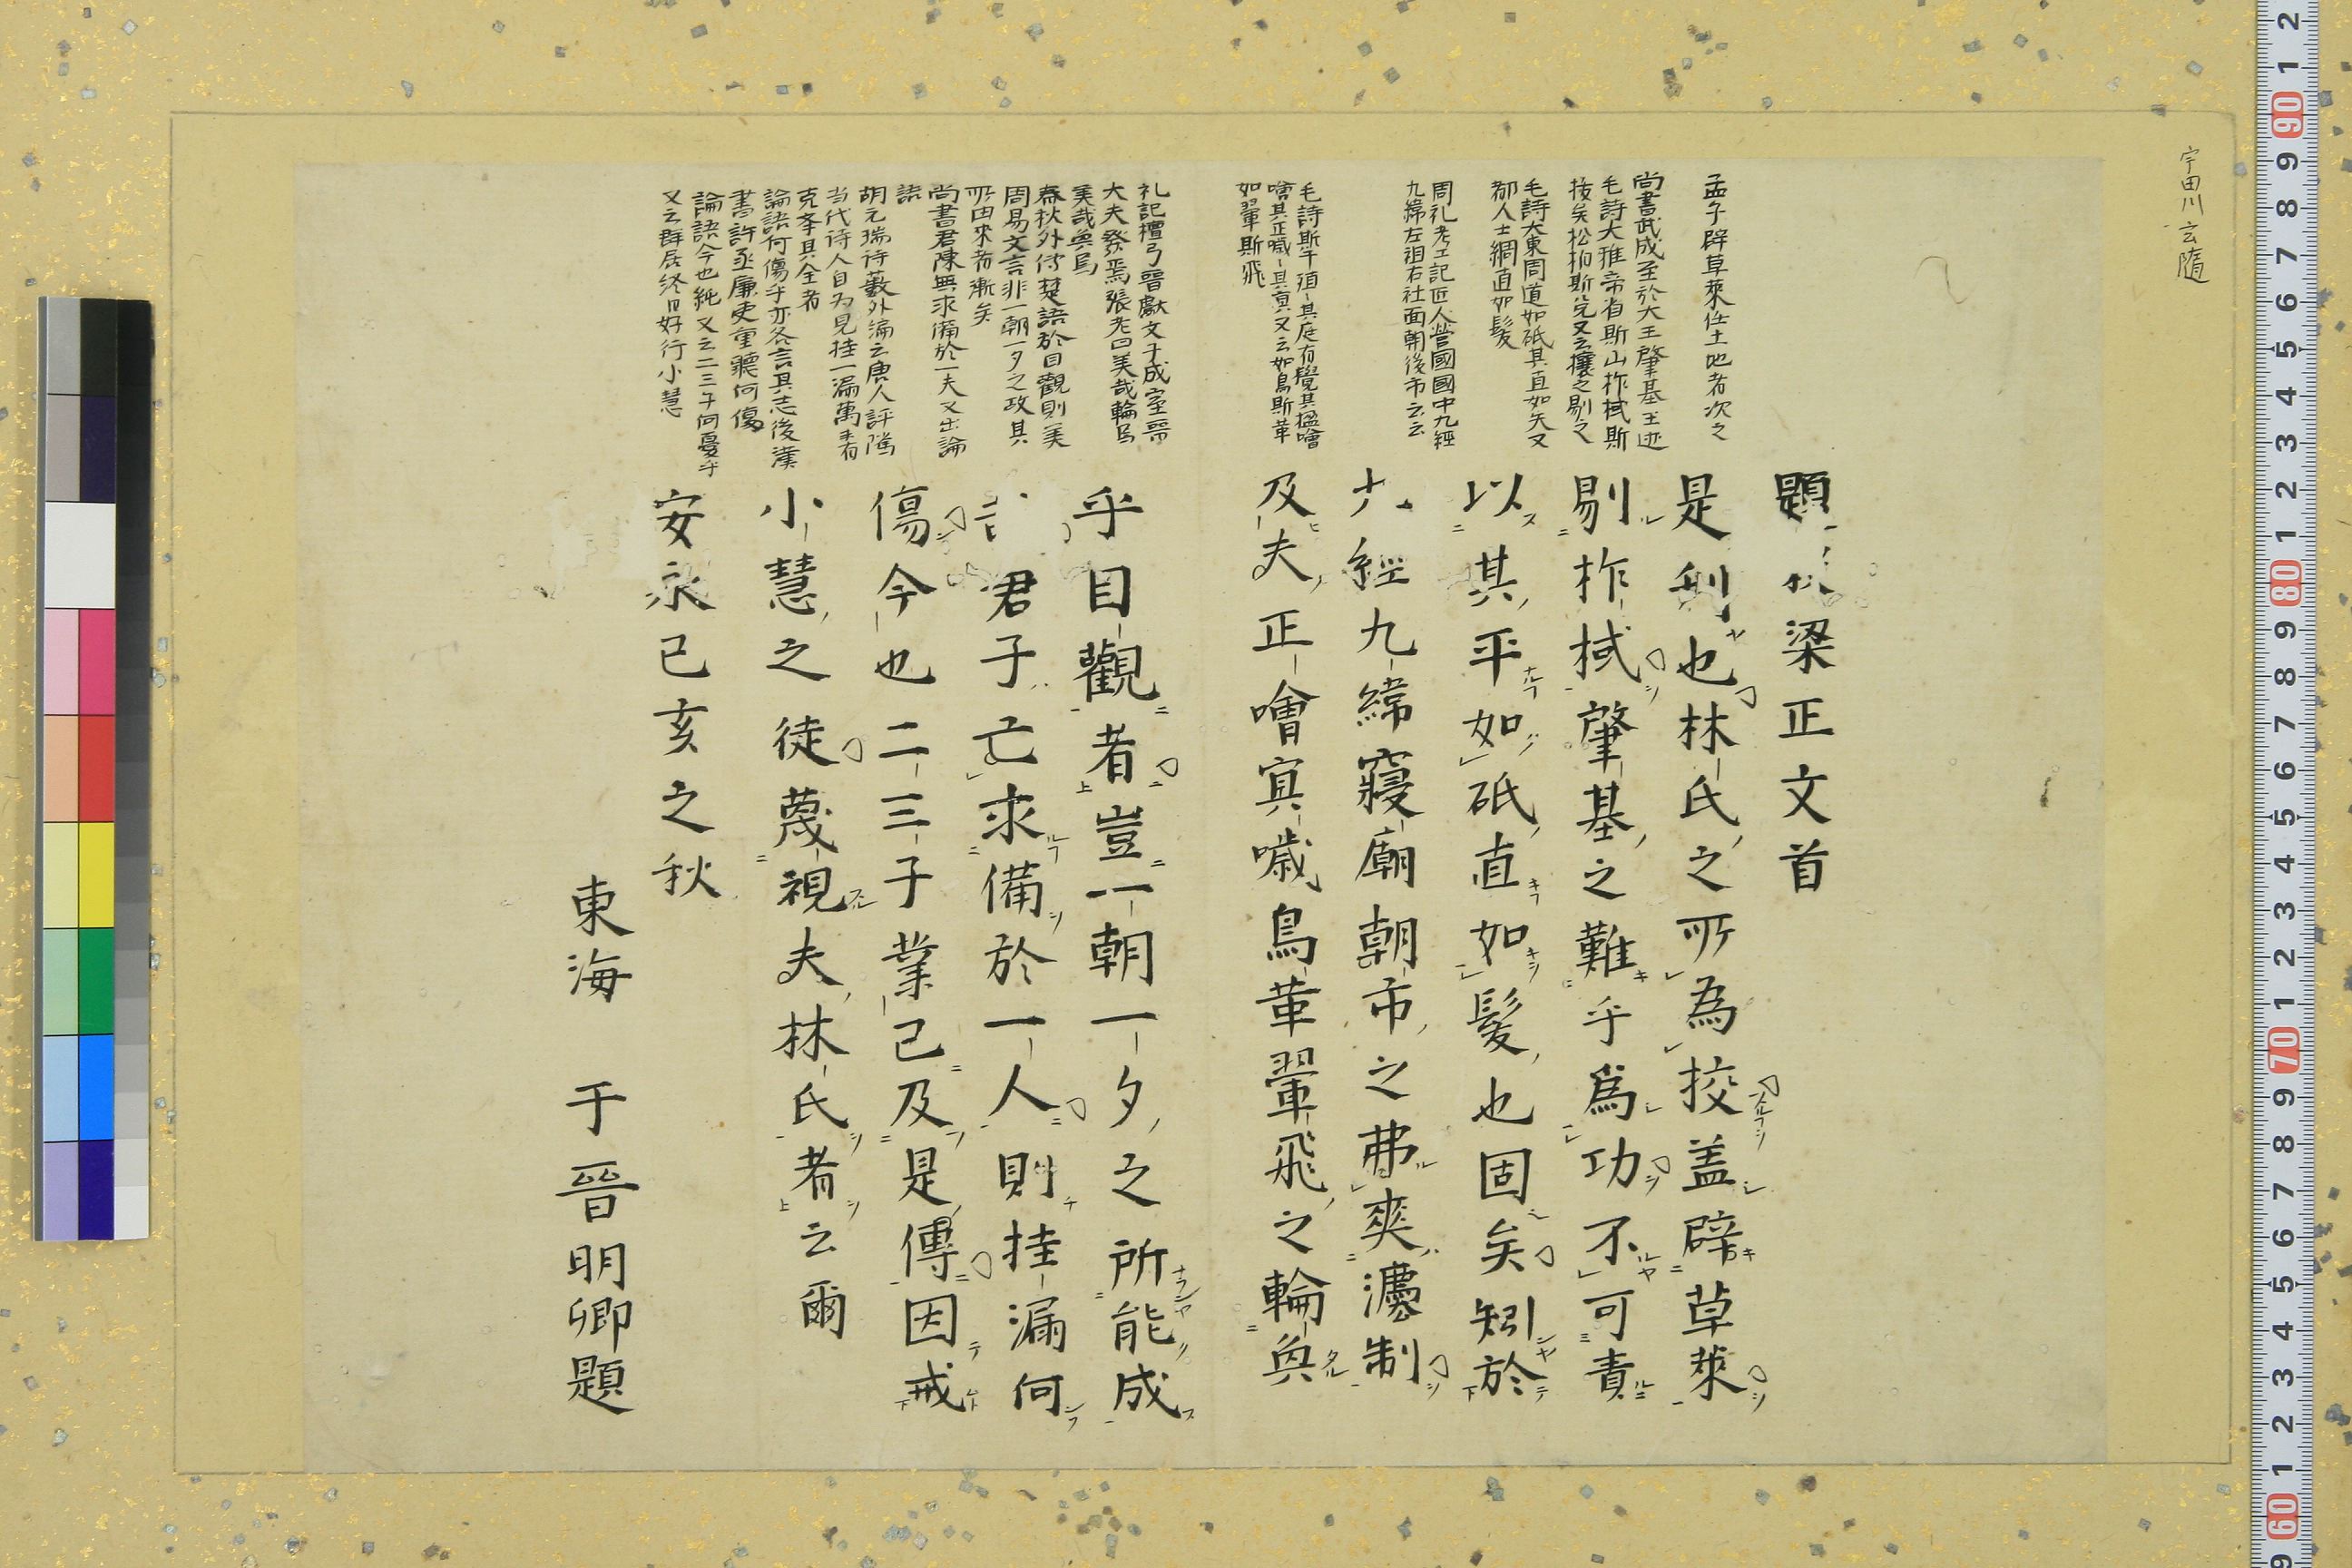 宇田川玄随
孟子辟草萊任土地者次之
尚書武成至於大王肇基王迹
毛詩大雅帝省斯山柞棫斯
拔矣松柏斯兌又云攘之剔之
毛詩大東周道如砥其直如矢又
都人士綢直如髮
周礼考工記匠人営國國中九經
九緯左祖右社面朝後市云云
毛詩斯干殖〻其庭有覺其楹噲
噲其正噦〻其冥又云如鳥斯革
如翬斯飛
礼記檀弓晉獻文子成室晉
大夫發焉張老曰美哉輪焉
美哉奐焉
春秋外傳楚語於目觀則美
周易文言非一朝一夕之故其
所由來者漸矣
尚書君陳無求備於一夫又出論
語
胡元瑞詩藪外編云唐人評隲
当代詩人自為見挂一漏萬未有
克挙其全者
論語何傷乎亦各言其志後漢
書許丞廉吏重聽何傷
論語今也純又云二三子何憂乎
又云群居終日好行小慧
題 梁正文首
是 也林氏之所為挍盖辟草萊
剔柞棫肇基之難乎爲功不可責
以其平如砥直如髮也固矣矧於
九經九緯寢廟朝市之弗爽灋制
及夫正噲冥噦鳥革翬飛之輪奐
乎目觀者豈一朝一夕之所能成
君子亡求備於一人則挂漏何
傷今也二三子業已及是傳因戒
小慧之徒蔑視夫林氏者云爾
安永己亥之秋
東海 于晉明卿題